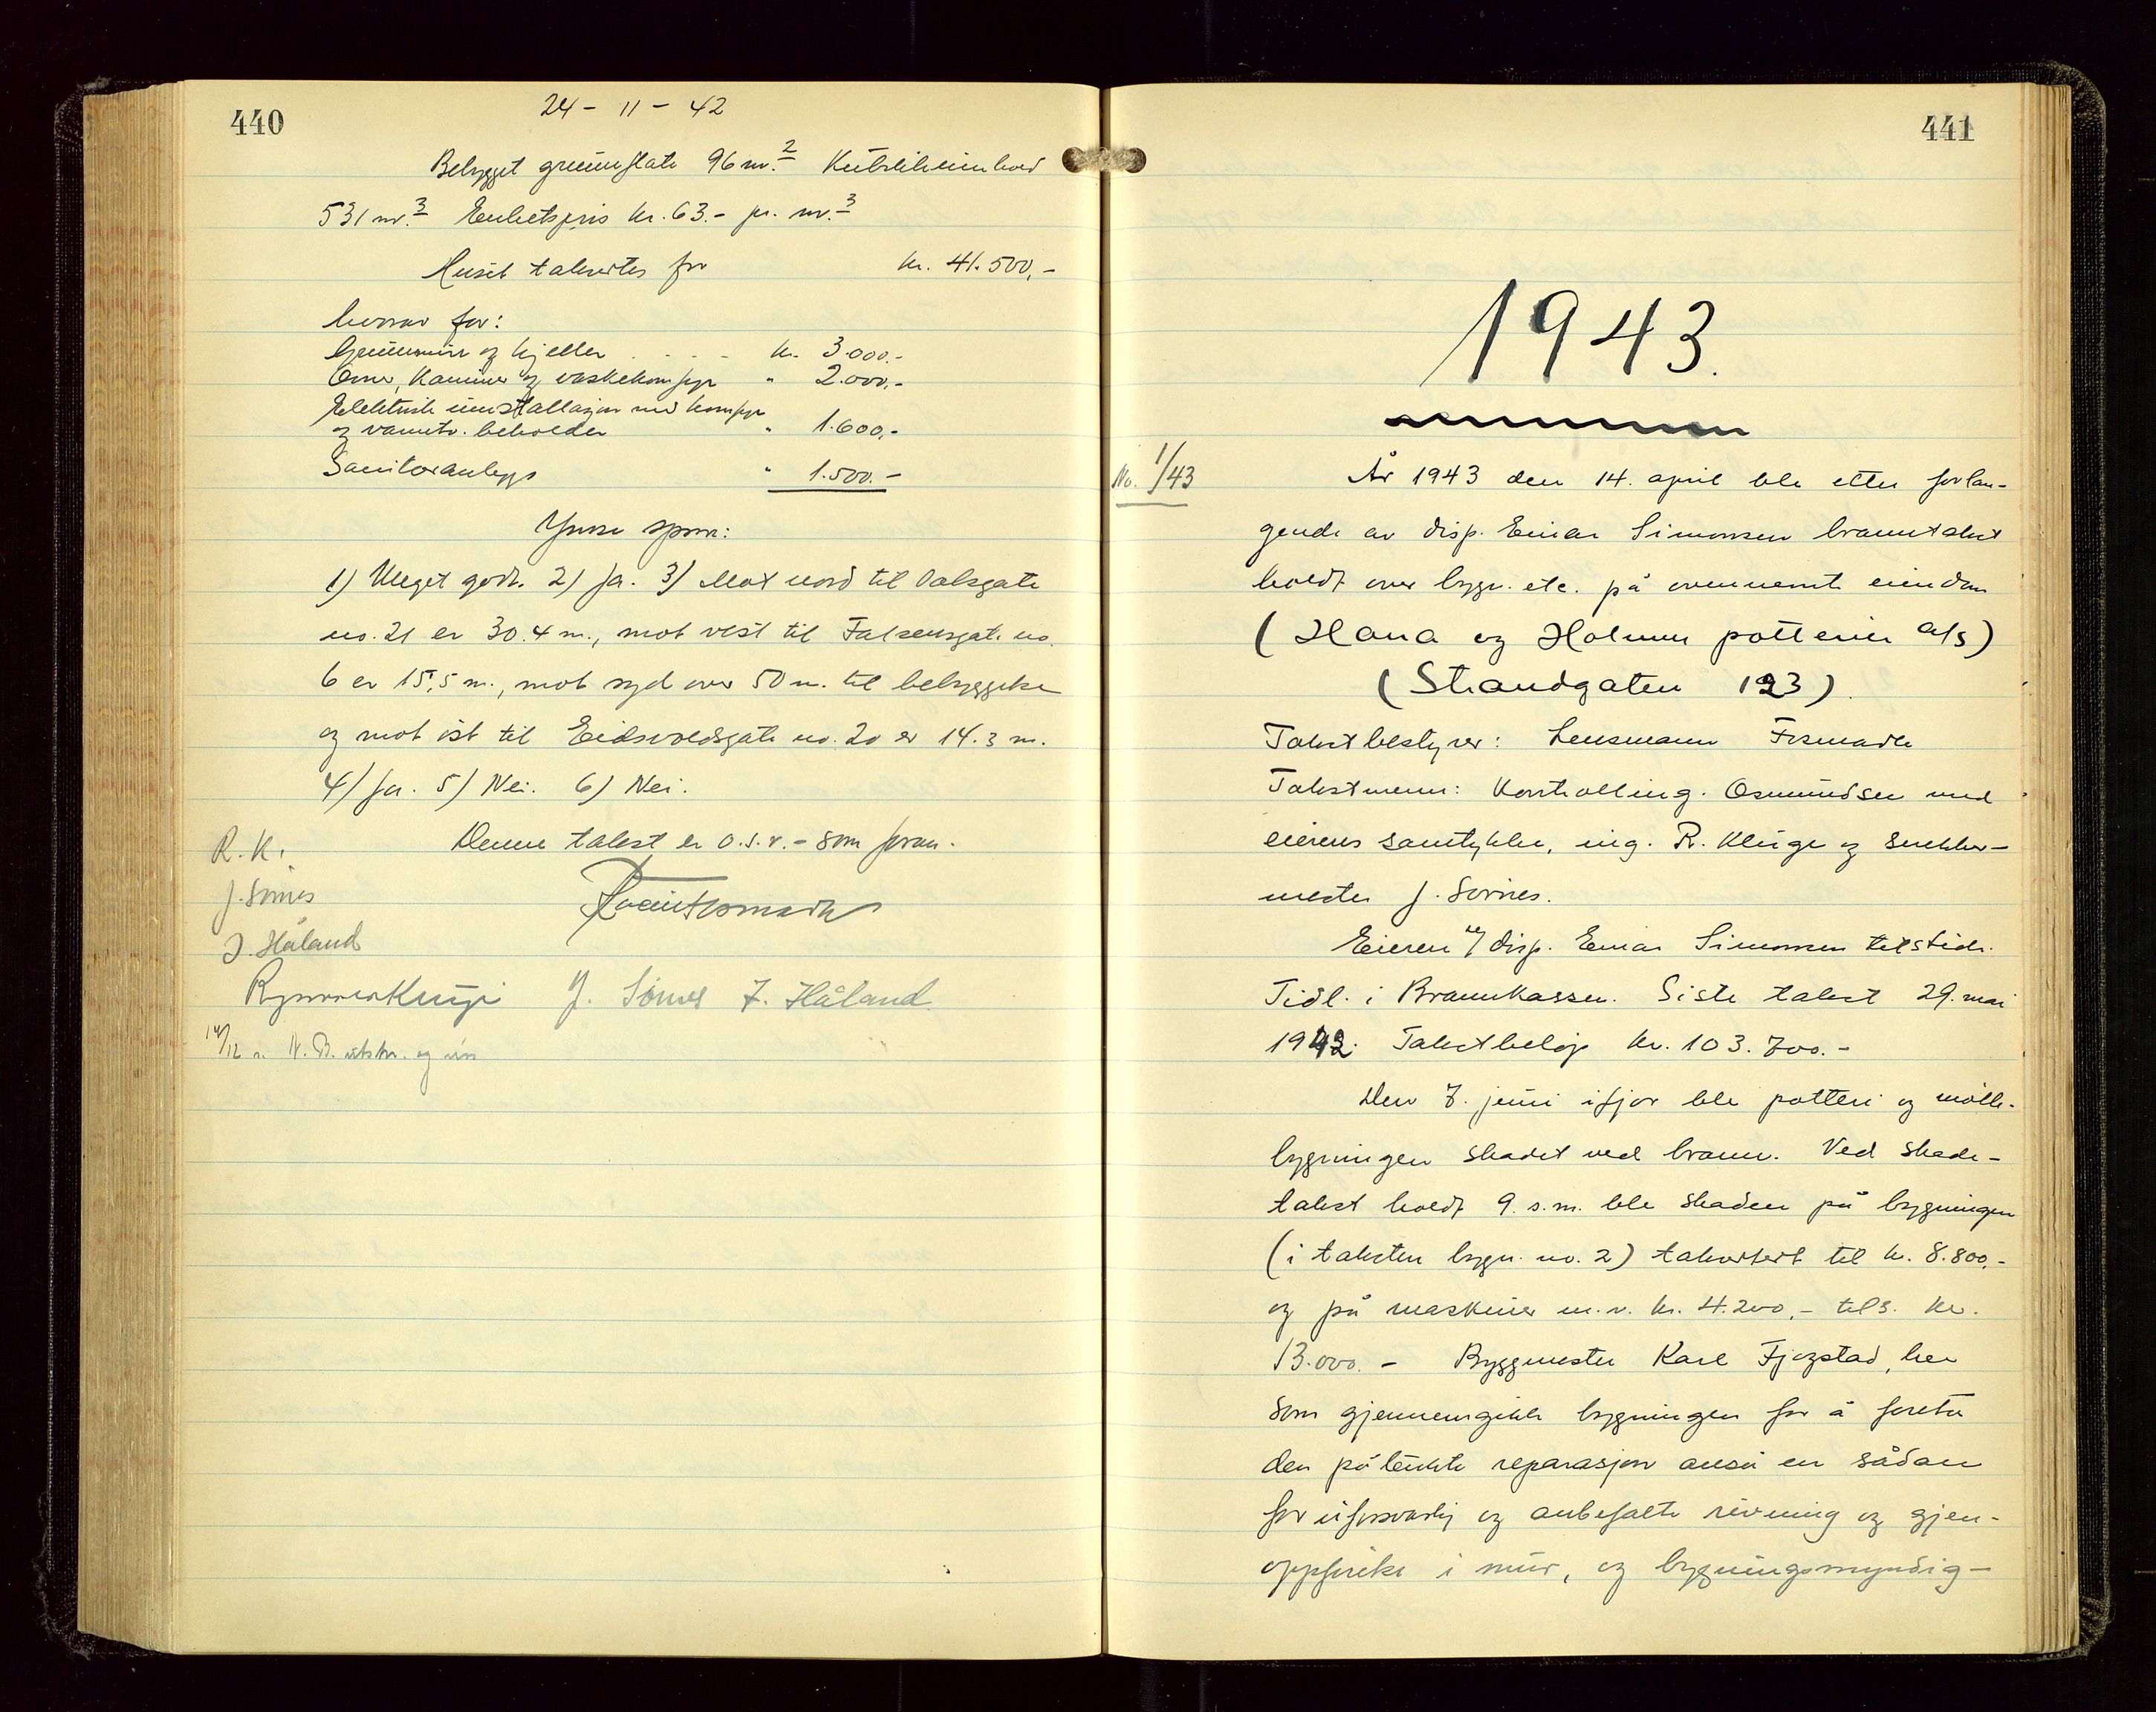 440
24 - 11 - 42
Bebygget grunnflate 96 m.² Kubikkinnhold
531 m.³ Enhetspris kr. 63.- pr. m.³
Huset takseres for kr. 41.500,-
hvorav for:
Grunnmur og kjeller . . . - kr. 3.000.-
Ovner, kaminer og vaskekomfyr " 2.000,-
Elektrisk innstallasjon med komfyr
og varmtv. beholder " 1.600,-
Sanitæranlegg " 1.500.-
Ymse spm:
1) Meget godt. 2) Ja. 3) Mot nord til Dalsgate
no. 21 er 30.4 m., mot vest til Falsensgate no.
6 er 15,5 m., mot syd over 50 m. til bebyggelse
og mot øst til Eidsvoldsgate no. 20 er 14.3 m.
4) Ja. 5) Nei. 6) Nei.
Denne takst er o.s.v. - som foran.
R. K.
J. Sørnes
J. Håland
J. Sørnes J. Håland
14/12 s. N. B. utskr. og
441
1943.
No. 1/43
År 1943 den 14. april ble etter forlan-
gende av disp. Einar Simonsen branntakst
holdt over bygn. etc. på ovennemnte eiendom
(Hana og Holmen potterier A/S)
(Strandgaten 193).
Takstbestyrer: Lensmann Fosmark
Takstmenn: Kontrolling. Osmundsen med
eierens samtykke, ing. R. Kluge og snekker-
mester J. Sørnes.
Eieren v/ disp. Einar Simonsen tilstede.
Tidl. i Brannkassen. Siste takst 29. mai
1942. Takstbeløp kr. 103.700.-
Den 7. juni ifjor ble potteri og mølle-
bygningen skadet ved brann. Ved skade-
takst holdt 9. s.m. ble skaden på bygningen
(i taksten bygn. no. 2) taksert til kr. 8.800,-
og på maskiner m.v. kr. 4.200,- tils. kr.
13.000.- Byggmester Karl Fjogstad, her
som gjennemgikk bygningen for å foreta
den påtenkte reparasjon anså en sådan
for uforsvarlig og anbefalte rivning og gjen-
oppførelse i mur, og bygningsmyndig-